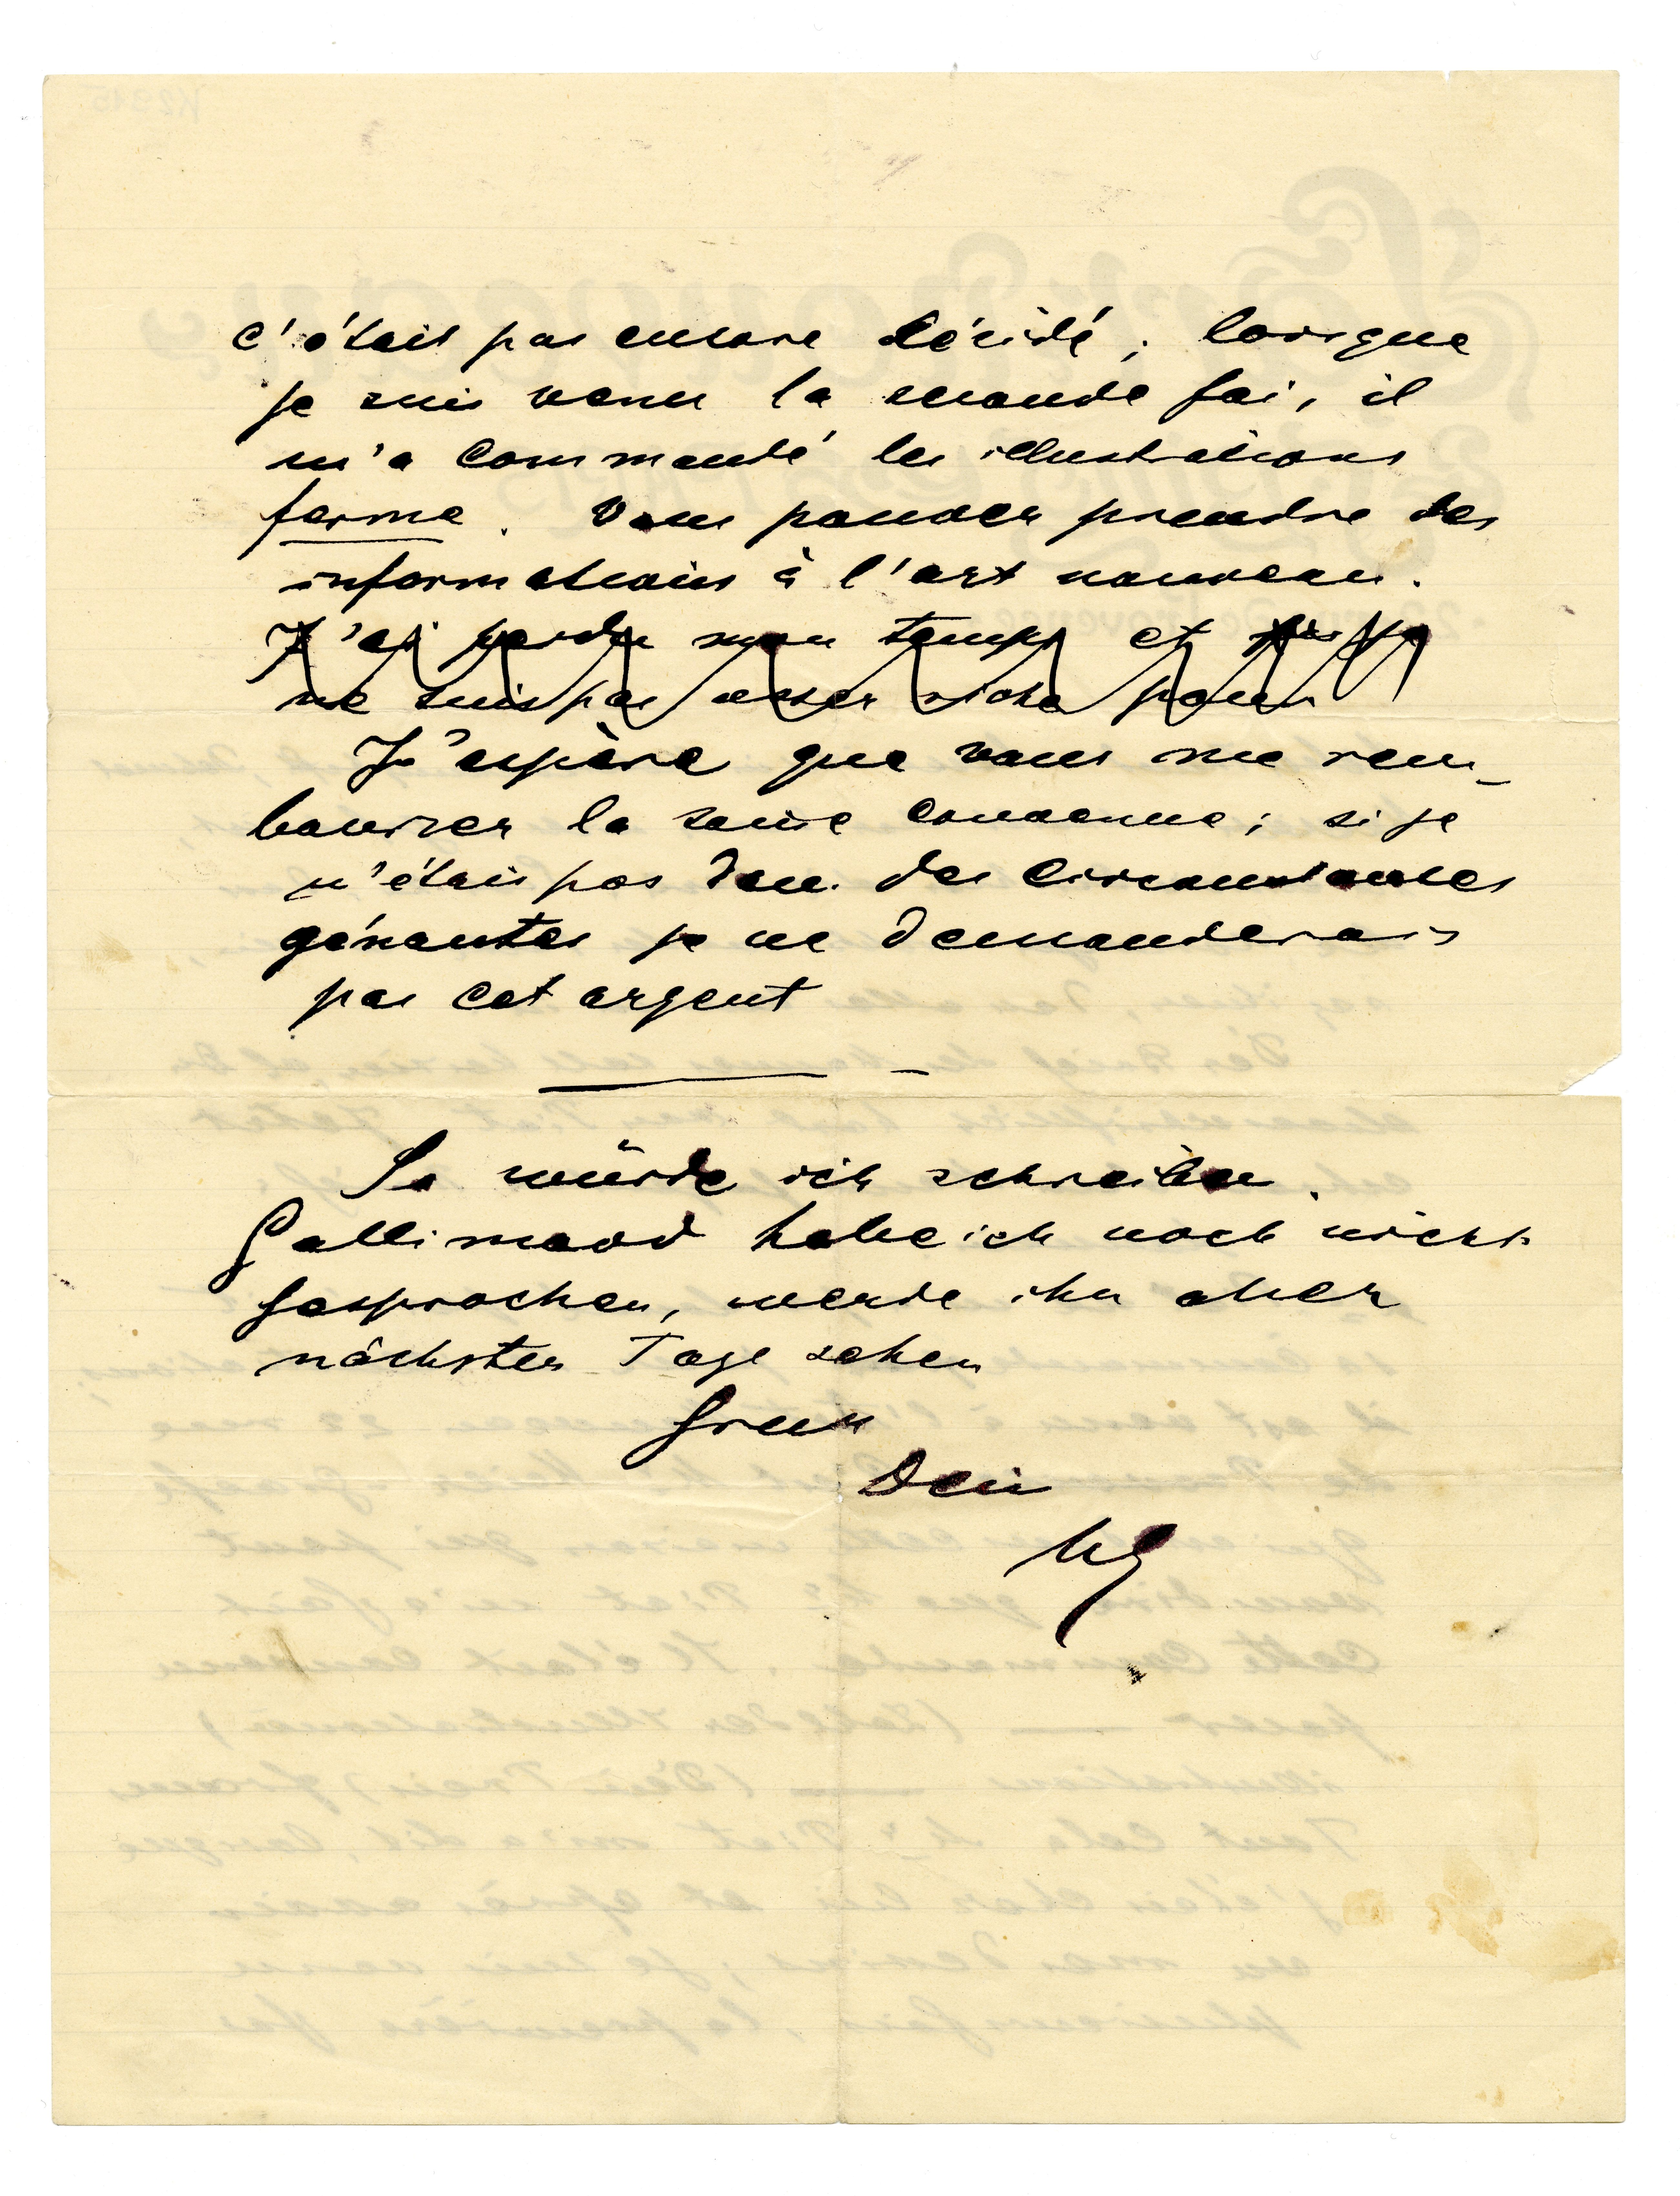 c'était pas encore décidé ; lorsque
je suis venu la seconde foi, il
m'a commandé les illustrations
ferme. Vous pouvez prendre des
informations à l'art nouveau.
J'ai perdu mon temps et
ne suis pas assez riche pour
J'espère que vous me rem-
bourser la somme convenue ; si je
n'étais pas dans des circonstances
génantes je ne demanderais
pas cet argent
So würde ich schreiben.
Gallimard habe ich noch nicht
gesprochen, werde ihn aber
nächster Tage sehen
Gruss
Dein